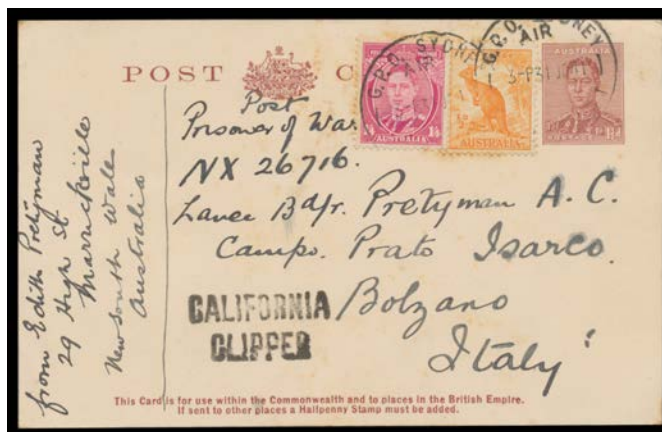 POST C
G.P.O. SYDNEY
AIR
G.P.O. SYDNEY
AIR
3-P31
AUSTRALIA
1/4
AUSTRALIA
AUSTRALIA
POSTAGE
Post
Prisoner of War
NX 26716.
Lance Bdr. Pretyman A. C.
Campo. Prato Isarco.
Bolzano
Italy
CALIFORNIA
CLIPPER
from Edith Pretyman
29 High St
Marrickville
New South Wale
Australia
This Card is for use within the Commonwealth and to places in the British Empire.
If sent to other places a Halfpenny Stamp must be added.